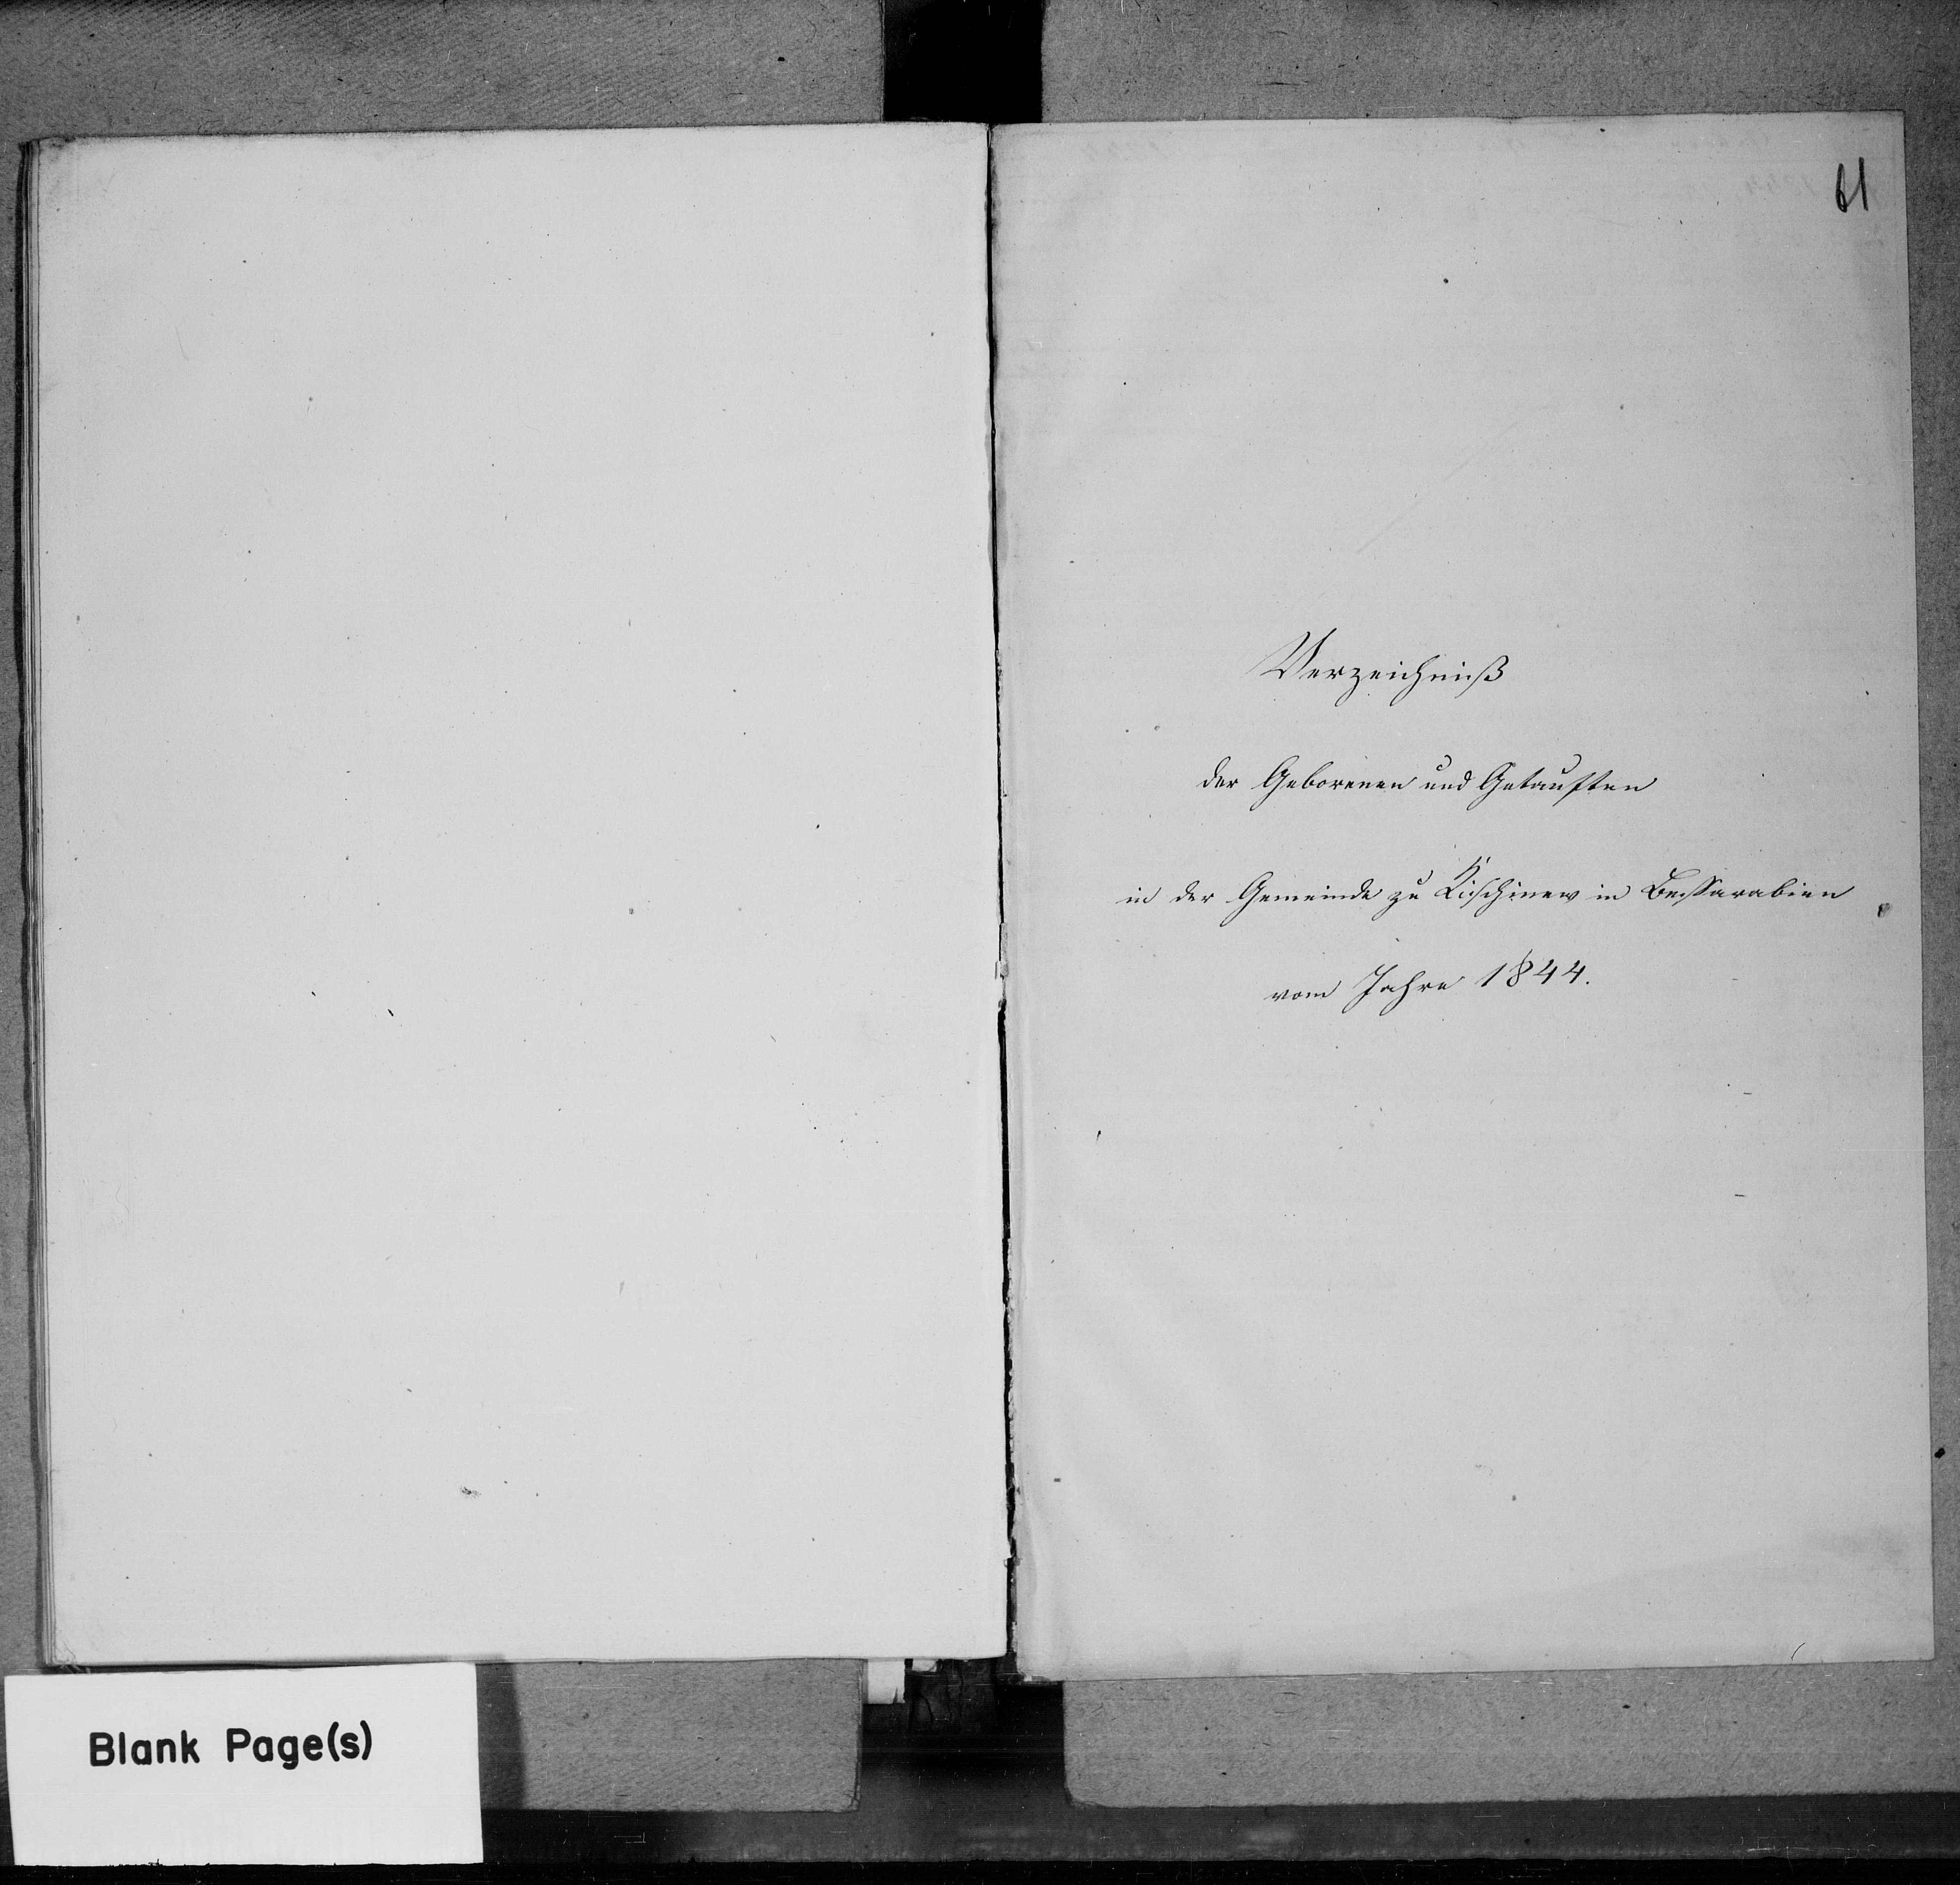 61
Verzeichniß
der Geborenen und Getauften
in der Gemeinde zu Kischinew in Bessarabien
vom Jahre 1844.
Blank Page(s)